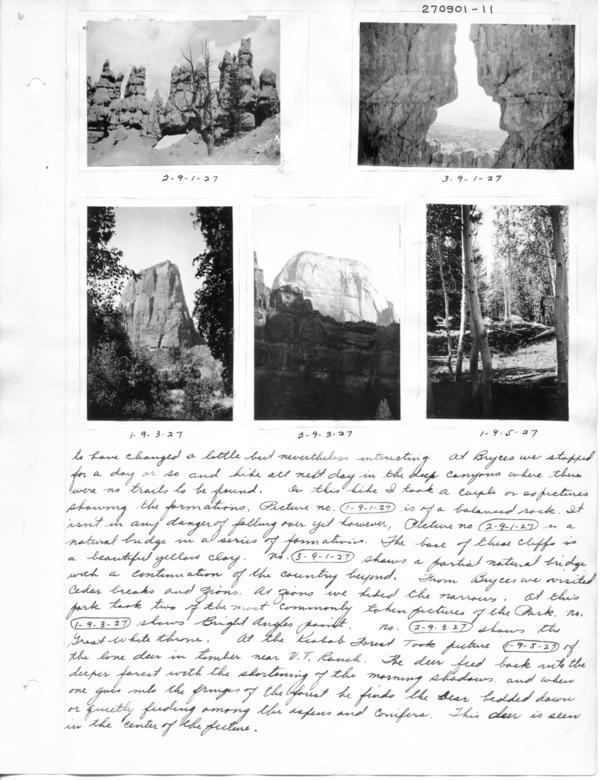 6
270901-11
2-9-1-27
3-9-1-27
1-9-3-27
2-9-3-27
1-9-5-27
to have changed a little but nevertheless interesting. At Bryces we stopped
for a day or so and hike all next day in the deep canyons where there
were no trails to be found. On this hike I took a couple or so pictures
showing the formations. Picture no. 1-9-1-27 is of a balanced rock. It
isn't in any danger of falling over yet however, Picture no 2-9-1-27 is a
natural bridge in a series of formations. The base of these cliffs is
a beautiful yellow clay. no. 3-9-1-27 shows a partial natural bridge
with a continuation of the country beyond. From Bryces we visited
Cedar breaks and Zions. At Zions we hiked the narrows. At this
park took two of the most commonly taken pictures of the Park. no.
1-9-3-27 shows Bright Angles point. no. 2-9-3-27 shows the
Great White throne. At the Kiabab Forest Took picture 1-9-5-27 of
the lone deer in timber near V.T. Ranch. The deer feed back into the
deeper forest with the shortening of the morning shadows. and when
one gets into the fringes of the forest he finds the deer bedded down
or quietly feeding among the aspens and conifers. This deer is seen
in the center of the picture.